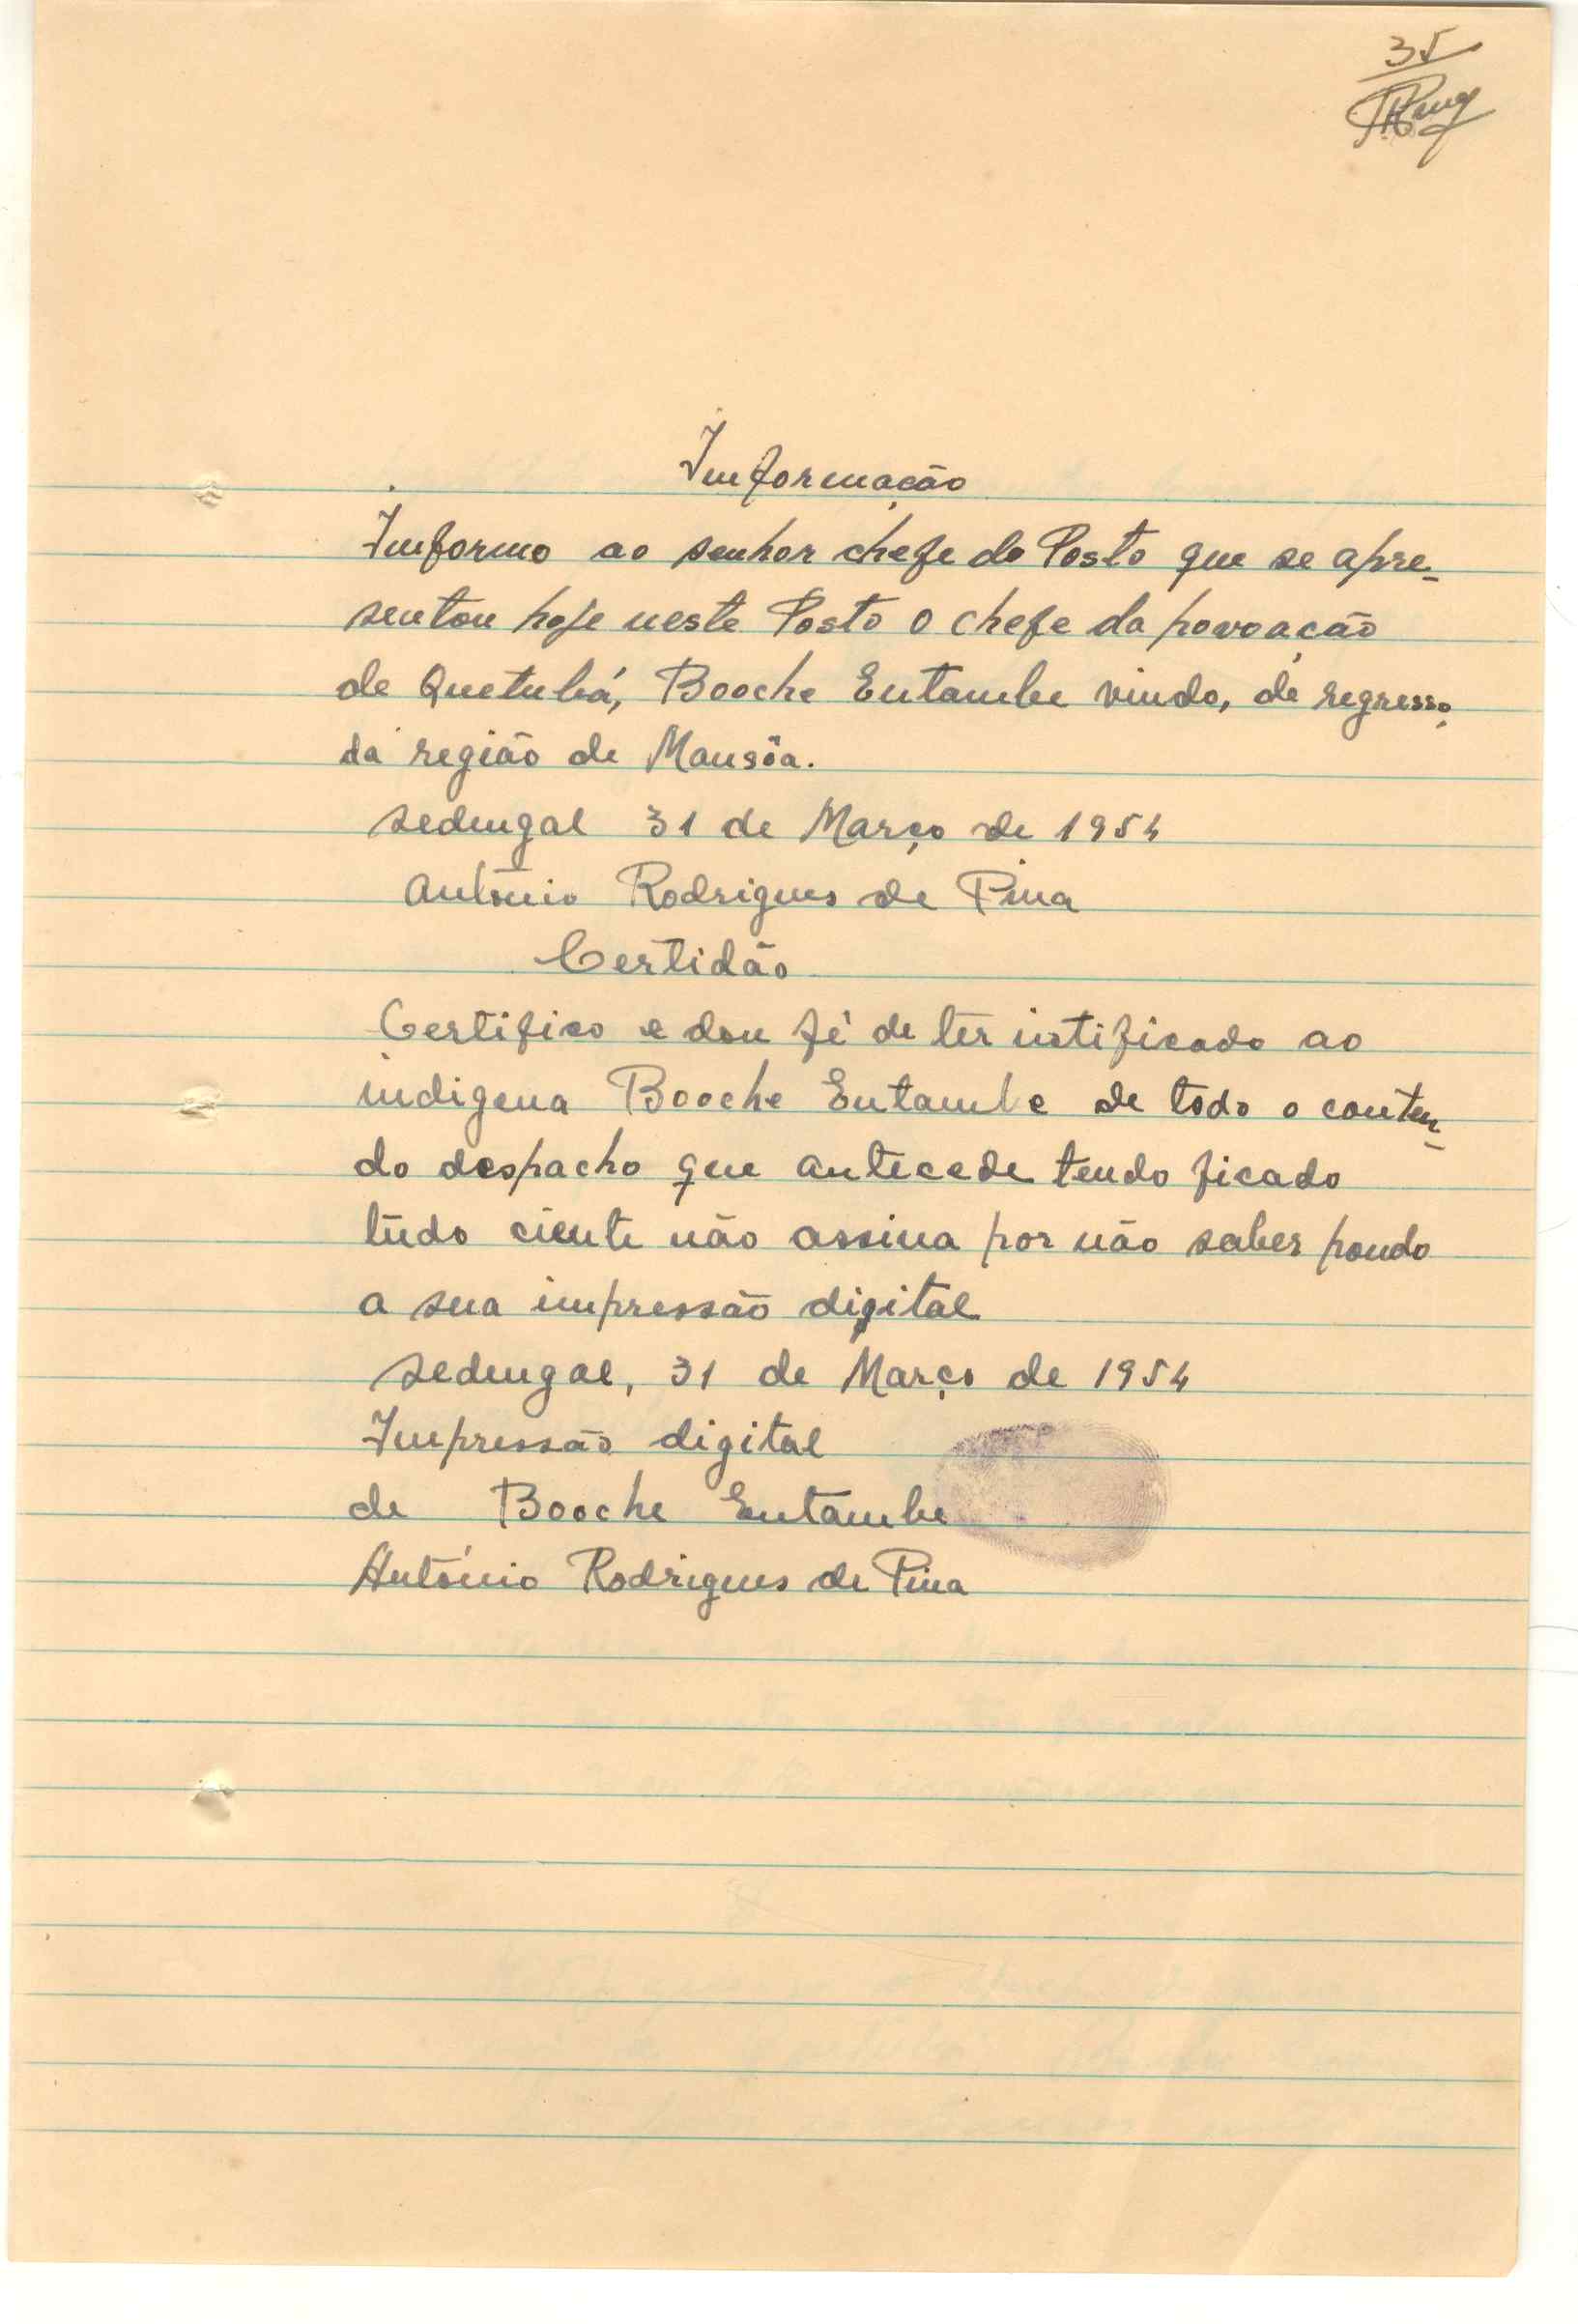 35
Informação
Informo ao senhor chefe do Posto que se apre-
sentou hoje neste Posto o chefe da povoação
de Quetubá, Booche Entambe vindo, de regresso,
da região de Mansôa.
Sedengal 31 de Março de 1954
António Rodrigues de Pina
Certidão
Certifico e dou fé de ter intificado ao
indigena Booche Entambe de todo o conteu-
do despacho que antecede tendo ficado
tudo ciente não assina por não saber pondo
a sua impressão digital
Sedengal, 31 de Março de 1954
Impressão digital
de Booche Entambe
António Rodrigues de Pina